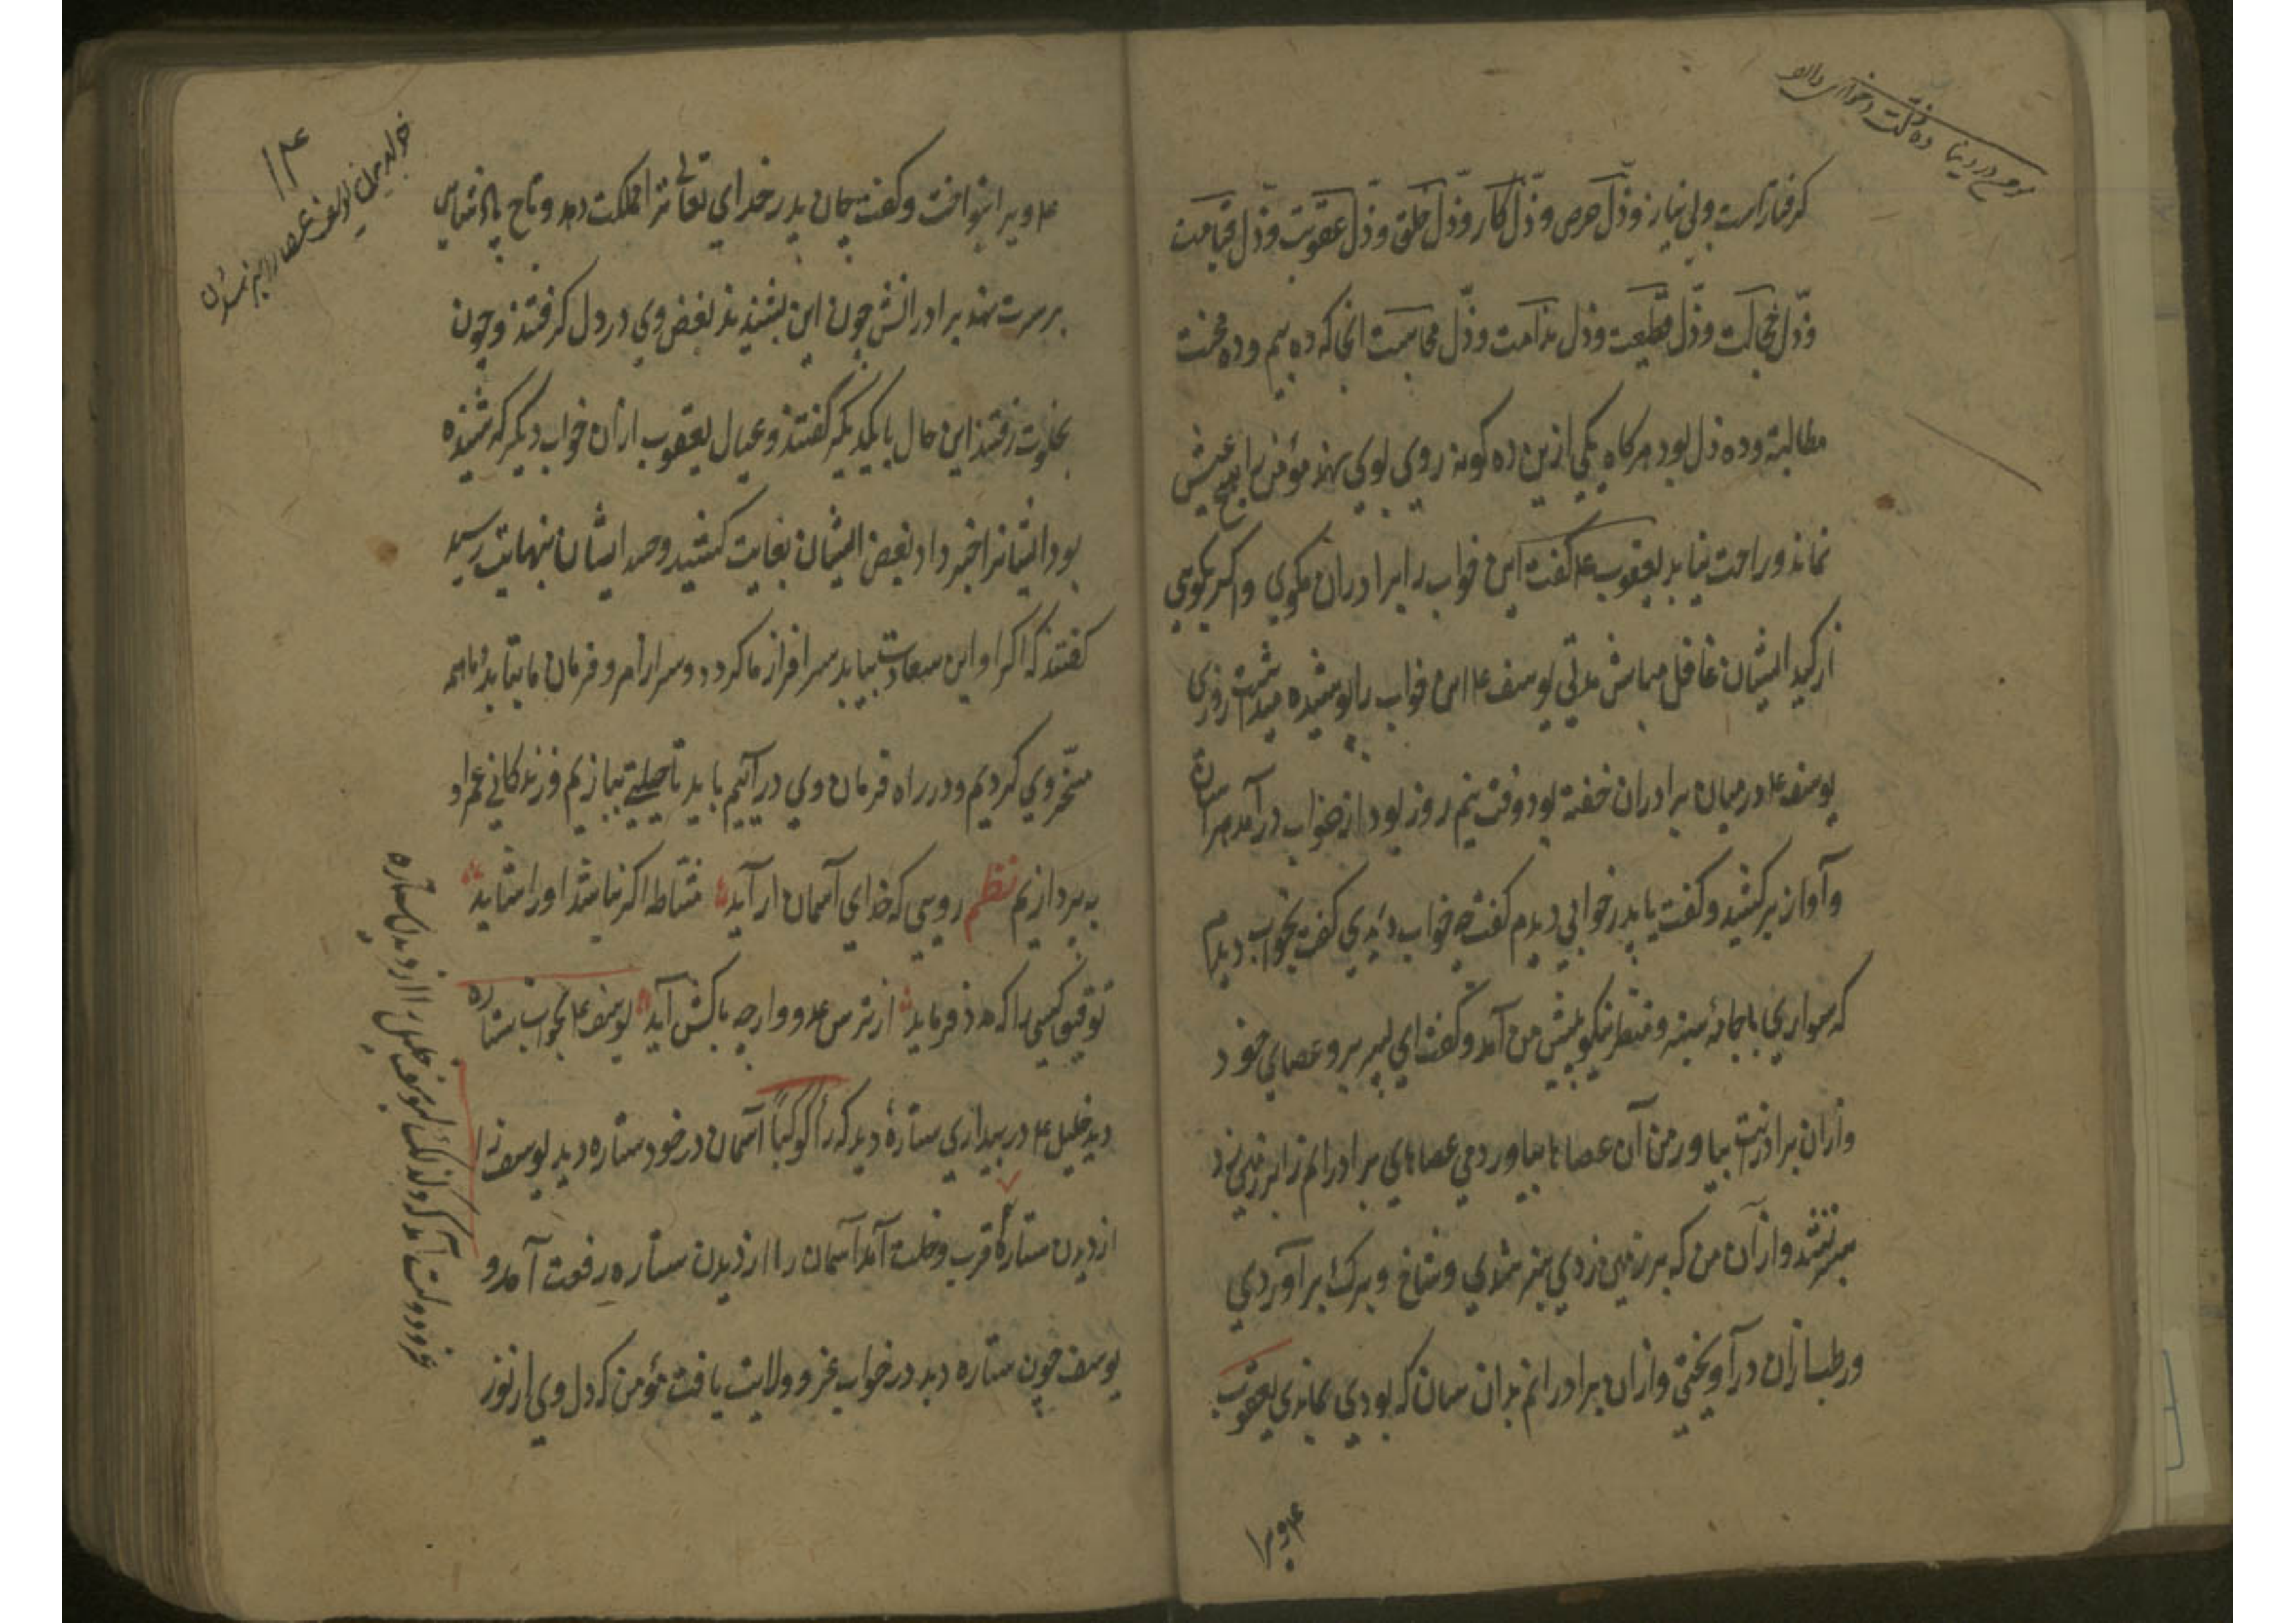 گرفتارست ولی نیاز و ذلّ حرص و ذلّ کار و ذلّ خلق و ذلّ عقوبت و ذلّ قیامت
و ذلّ خجالت و ذلّ قطیعت و ذل ندامت و ذلّ محاسبت انجا که ده بیم و ده محنت
مطالبة و ده ذل بود هرکاه یکی ازین ده کونه روی بوی نهند مؤمن را هیچ عیش
نماند و راحت نیابد یعقوب ع م کفت این خواب را برادران مکوی و اکر بکویی
از کید ایشان غافل مباش مدتی یوسف ع م این خواب را پوشیده میداشت روزی
یوسف ع م در میان برادران خفته بود وقت نیم روز بود از خواب درآمد هراسان
و آواز برکشید و کفت یا پدر خوابی دیدم کفت چه خواب دیدی کفت بخواب دیدم
که سواری با جامهٔ سبز و منظر نیکو پیش من آمد و کفت ای پسر برو عصای خود
و ازان برادرانت بیاور من آن عصاها بیاوردمی عصاهای برادرانم را بر زمین زد
و از آن من که بر زمین زدی سبز شدی و شاخ و برک برآوردی
و رطبازان درآویختی و ازان برادرانم بدان سان که بودی بماندی یعقوب
ع م ویرا
۱۴
ع م ویرا بنواخت و کفت جان پدر خدای تعالی ترا مملکت دهد و تاج پادشاهی
بر سرت نهد برادرانش چون این بشنیدند بغض وی در دل کرفتند و چون
بخلوت رفتند این حال با یکدیکر گفتند و عیال یعقوب ازان خواب دیکر که شنیده
بود ایشانرا خبر داد بغض ایشان بغایت کشید و حسد ایشان بنهایت رسید
کفتند که اکر او این سعادت بیابد سرافراز ما کردد و سر از امر و فرمان ما بتابد و ما همه
مسخّر وی کردیم و در راه فرمان وی درآییم باید تا حیلتی بسازیم و زندکانی عم او
بپردازیم نظم رویی که خدای آسمان آراید مشاطه اکر نباشد او را شاید
توفیق کسی را که مدد فرماید از ترس عدو وارچه باکش آید یوسف ع م بخواب ستاره
دید خلیل ع م در بیداری ستارهٔ دید که رأی کوکباً آسمان در خود ستاره دید یوسف را
از دیدن ستاره قرب و خلت آمد آسمان را از دیدن ستاره رفعت آمد و
یوسف چون ستاره دید در خواب عز و ولایت یافت مؤمن که دل وی از نور